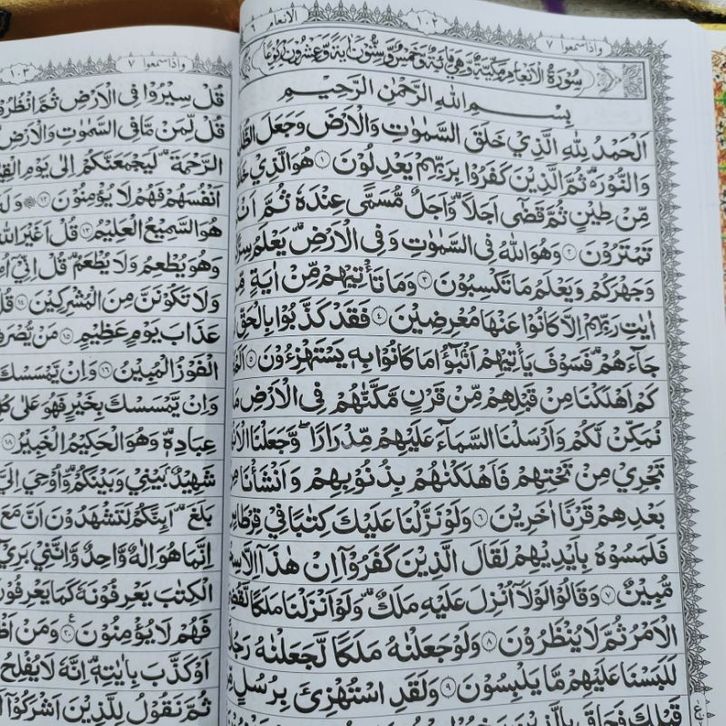 واذاسمعوا ٧
١٠٢
الانعام ٦
سُوْرَةُ الْاَنْعَامِ مَكِّيَّةٌ وَّهِيَ مِائَةٌ وَّخَمْسٌ وَّسِتُّوْنَ اٰيَةً وَّعِشْرُوْنَ رُكُوْعًا
بِسْمِ اللّٰهِ الرَّحْمٰنِ الرَّحِيْمِ
اَلْحَمْدُ لِلّٰهِ الَّذِيْ خَلَقَ السَّمٰوٰتِ وَالْاَرْضَ وَجَعَلَ
وَالنُّوْرَ ۥۗ ثُمَّ الَّذِيْنَ كَفَرُوْا بِرَبِّهِمْ يَعْدِلُوْنَ ١ هُوَ الَّذِيْ
مِّنْ طِيْنٍ ثُمَّ قَضٰٓى اَجَلًا ۗ وَاَجَلٌ مُّسَمًّى عِنْدَهٗ ثُمَّ
تَمْتَرُوْنَ ٢ وَهُوَ اللّٰهُ فِى السَّمٰوٰتِ وَفِى الْاَرْضِ ۗ يَعْلَمُ
وَجَهْرَكُمْ وَيَعْلَمُ مَا تَكْسِبُوْنَ ٣ وَمَا تَأْتِيْهِمْ مِّنْ اٰيَةٍ
اٰيٰتِ رَبِّهِمْ اِلَّا كَانُوْا عَنْهَا مُعْرِضِيْنَ ٤ فَقَدْ كَذَّبُوْا بِالْحَقِّ
جَاۤءَهُمْ ۗ فَسَوْفَ يَأْتِيْهِمْ اَنْۢبٰۤؤُا مَا كَانُوْا بِهٖ يَسْتَهْزِءُوْنَ ٥
كَمْ اَهْلَكْنَا مِنْ قَبْلِهِمْ مِّنْ قَرْنٍ مَّكَّنّٰهُمْ فِى الْاَرْضِ
نُمَكِّنْ لَّكُمْ وَاَرْسَلْنَا السَّمَاۤءَ عَلَيْهِمْ مِّدْرَارًا ۖ وَّجَعَلْنَا
تَجْرِيْ مِنْ تَحْتِهِمْ فَاَهْلَكْنٰهُمْ بِذُنُوْبِهِمْ وَاَنْشَأْنَا
بَعْدِهِمْ قَرْنًا اٰخَرِيْنَ ٦ وَلَوْ نَزَّلْنَا عَلَيْكَ كِتٰبًا فِيْ
فَلَمَسُوْهُ بِاَيْدِيْهِمْ لَقَالَ الَّذِيْنَ كَفَرُوْٓا اِنْ هٰذَآ اِلَّا
مُّبِيْنٌ ٧ وَقَالُوْا لَوْلَآ اُنْزِلَ عَلَيْهِ مَلَكٌ ۗ وَلَوْ اَنْزَلْنَا مَلَكًا
الْاَمْرُ ثُمَّ لَا يُنْظَرُوْنَ ٨ وَلَوْ جَعَلْنٰهُ مَلَكًا لَّجَعَلْنٰهُ
لَلَبَسْنَا عَلَيْهِمْ مَّا يَلْبِسُوْنَ ٩ وَلَقَدِ اسْتُهْزِئَ بِرُسُلٍ
واذاسمعوا ٧
١٠٣
قُلْ سِيْرُوْا فِى الْاَرْضِ ثُمَّ انْظُرُوْا
قُلْ لِّمَنْ مَّا فِى السَّمٰوٰتِ وَالْاَرْضِ
الرَّحْمَةَ ۗ لَيَجْمَعَنَّكُمْ اِلٰى يَوْمِ
اَنْفُسَهُمْ فَهُمْ لَا يُؤْمِنُوْنَ ١٢
هُوَ السَّمِيْعُ الْعَلِيْمُ ١٣ قُلْ اَغَيْرَ اللّٰهِ
وَهُوَ يُطْعِمُ وَلَا يُطْعَمُ ۗ قُلْ اِنِّيْٓ
وَلَا تَكُوْنَنَّ مِنَ الْمُشْرِكِيْنَ ١٤ قُلْ
عَذَابَ يَوْمٍ عَظِيْمٍ ١٥ مَنْ يُّصْرَفْ
الْفَوْزُ الْمُبِيْنُ ١٦ وَاِنْ يَّمْسَسْكَ
وَاِنْ يَّمْسَسْكَ بِخَيْرٍ فَهُوَ عَلٰى
عِبَادِهٖ ۗ وَهُوَ الْحَكِيْمُ الْخَبِيْرُ ١٨
شَهِيْدٌۢ بَيْنِيْ وَبَيْنَكُمْ ۗ وَاُوْحِيَ
بَلَغَ ۗ اَىِٕنَّكُمْ لَتَشْهَدُوْنَ اَنَّ مَعَ
اِنَّمَا هُوَ اِلٰهٌ وَّاحِدٌ وَّاِنَّنِيْ
الْكِتٰبَ يَعْرِفُوْنَهٗ كَمَا يَعْرِفُوْنَ
فَهُمْ لَا يُؤْمِنُوْنَ ٢٠ وَمَنْ
اَوْ كَذَّبَ بِاٰيٰتِهٖ ۗ اِنَّهٗ لَا يُفْلِحُ
ثُمَّ نَقُوْلُ لِلَّذِيْنَ اَشْرَكُوْٓا